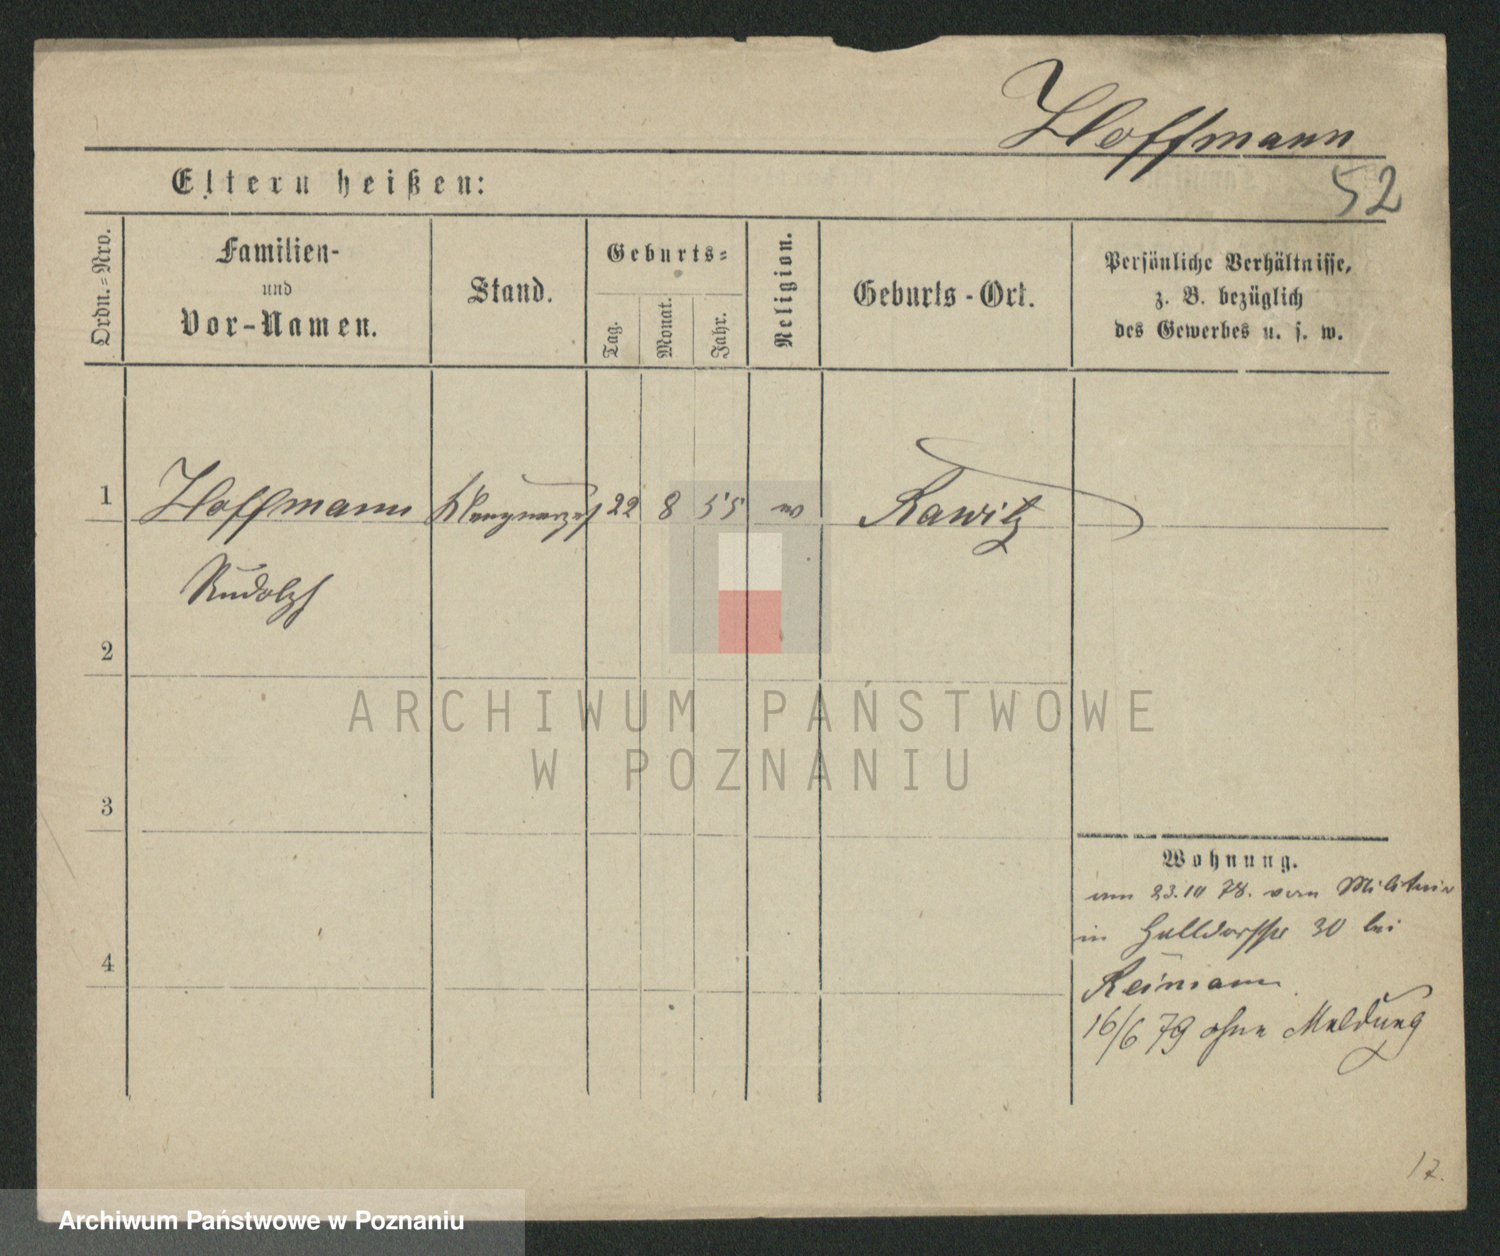 Hoffmann
52
Eltern heißen:
Ordn.-Nro.
Familien-
und
Vor-Namen.
Stand.
Geburts-
Tag.
Monat.
Jahr.
Religion.
Geburts-Ort.
Persönliche Verhältnisse,
z. B. bezüglich
des Gewerbes u. s. w.
1
Hoffmann
22
8
55
Rawitz
Rudolph
2
ARCHIWUM PAŃSTWOWE
W POZNANIU
3
Wohnung.
am 23.10 78. vom Militair
in 30 bei
4
Reimann
16/6 79 ohne Meldung
17.
Archiwum Państwowe w Poznaniu